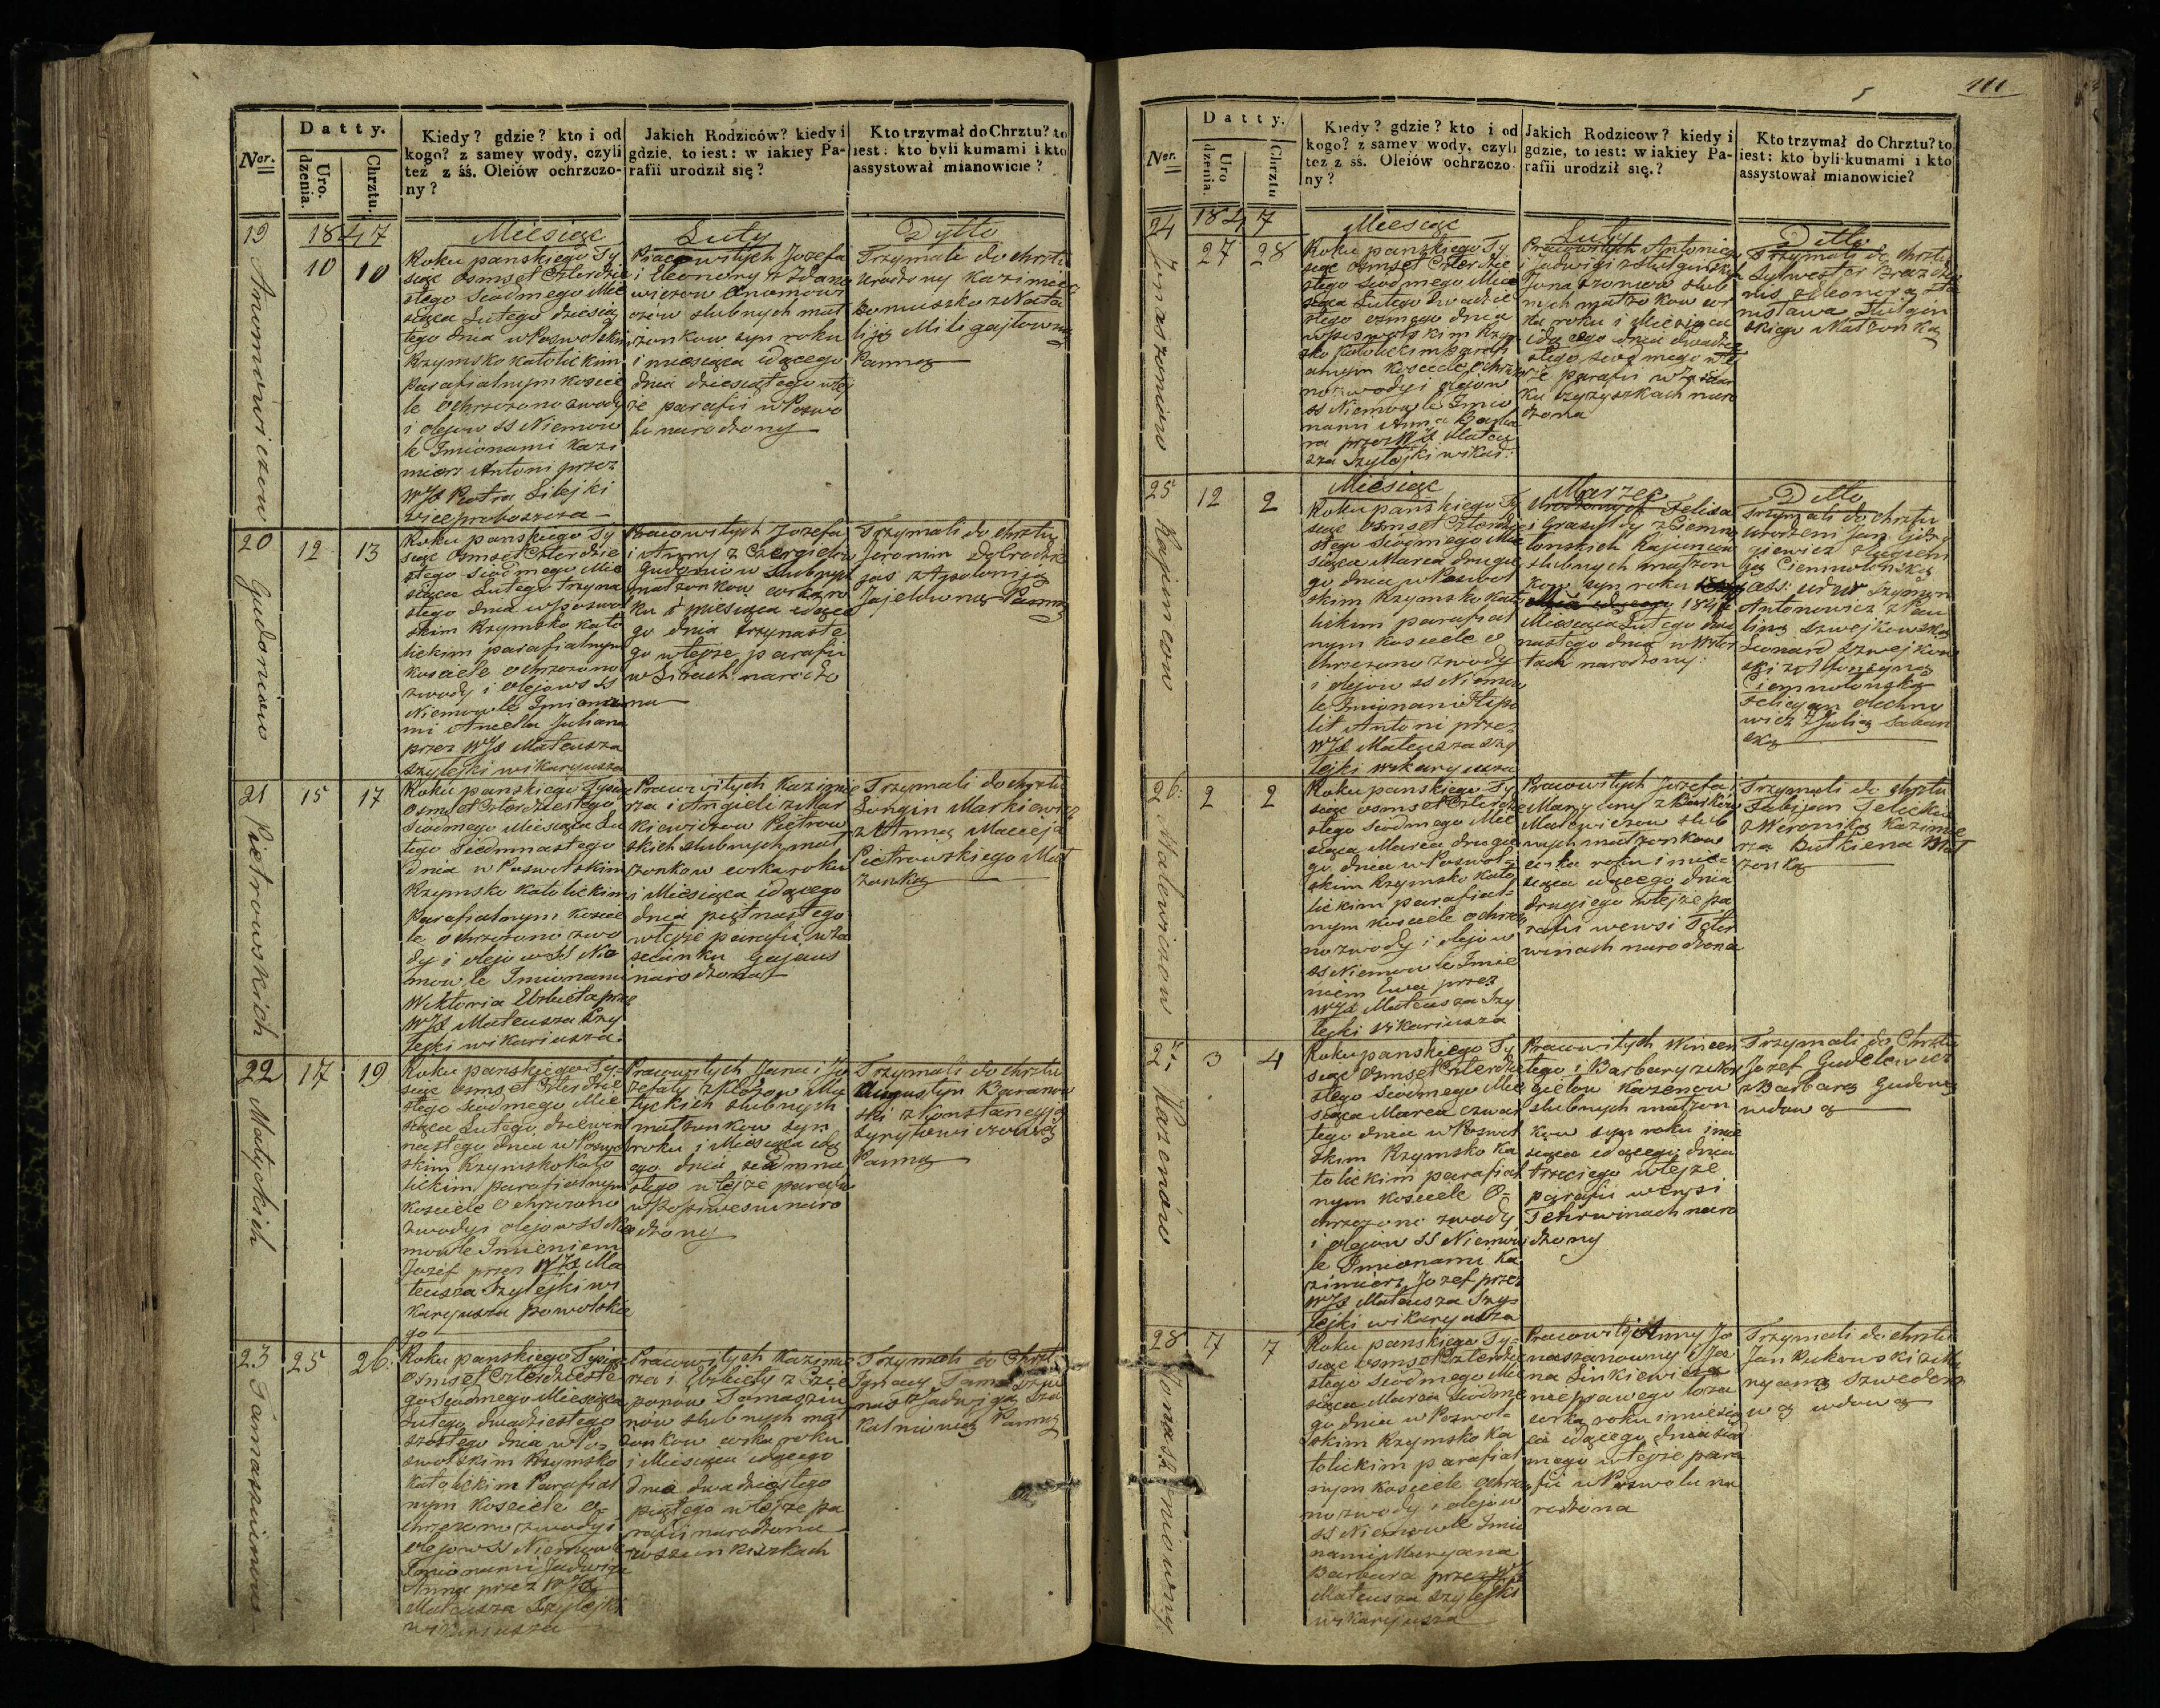 Datty.
Nor.
Uro.
dzenia.
Chrztu.
Kiedy? gdzie? kto i od
kogo? z samey wody, czyli
też z śś. Oleiów ochrzczo-
ny?
Jakich Rodziców? kiedy i
gdzie, to iest: w iakiey Pa-
rafii urodził się?
Kto trzymał do Chrztu? to
iest: kto byli kumami i kto
assystował mianowicie?
19
1847
10 10
Miesiąc
Roku panskiego Ty
siąc Osmset Czterdzie
stego Siodmego Mie
siąca Lutego dziesią
tego dnia w Poswolskim
Rzymsko Katolickim
Parafialnym Koscie
le Ochrzczono z wody
i olejow SS Niemow
le Imionami Kazi
mierz Antoni przez
WJX Piotra Lilejki
viceproboszcza
Luty
Pracowitych Jozefa
i Eleonory z
slubnych mał
żonkow syn roku
i miesiąca idącego
dnia dziesiątego w tej
że parafii w Poswo
lu narodzony
Dytto
Trzymali do chrztu
Urodzony Kazimierz
z Nata
liją
Panną
20
Gudoniow
12 13
Roku panskiego Ty
siąc Osmset Czterdzie
stego Siodmego Mie
siąca Lutego trzyna
stego dnia w Poswol
skim Rzymsko Kato
lickim parafialnym
Kosciele ochrzczono
z wody i olejow SS
Niemowle Imiona
mi Aniella Juliana
przez WJX Mateusza
Szylejki wikaryusza
Pracowitych Jozefa
i Anny z
Gudoniow slubnych
małżonkow corka ro
ku i miesiąca idące
go dnia trzynaste
go w tejże parafii
w narodzo
na
Trzymali do chrztu
Jeronim
z Apolloniją
Panną
21
Pietrowskich
15 17
Roku panskiego Tysiąc
Osmset Czterdziestego
Siodmego Miesiąca Lu
tego Siedmnastego
dnia w Poswolskim
Rzymsko Katolickim
Parafialnym Koscie
le ochrzczono z wo
dy i olejow SS Nie
mowle Imionami
Wiktoria Elzbieta prze
WJX Mateusza Szy
lejki wikariusza.
Pracowitych Kazimie
rza i Angieli z Mar
kiewiczow Pietrow
skich slubnych mał
żonkow corka roku
i Miesiąca idącego
dnia piętnastego
w tejże parafii w za
scianku Gajuns
narodzona
Trzymali do chrztu
Longin Markiewicz
z Anną Macieja
Pietrowskiego Mał
żonką
22
Matyckich
17 19
Roku panskiego Ty
siąc Osmset Czterdzie
stego Siodmego Mie
siąca Lutego dziewię
nastego dnia w Poswol
skim Rzymsko Kato
lickim parafialnym
Kosciele Ochrzczono
z wody i olejow SS Nie
mowle Imieniem
Jozef przez WJX Ma
teusza Szylejki wi
karyusza powolskie
go
Pracowitych Jana i Jo
zefaty z Ma
tyckich slubnych
małżonkow syn
roku i Miesiąca idą
cego dnia siedmna
stego w tejże parafii
naro
dzony
Trzymali do chrztu
Augustyn Baranow
ski z Konstancyją
Panną
23
Tamaszuniow
25 26.
Roku panskiego Tysiąc
Osmset Czterdzieste
go Siodmego Miesiąca
Lutego dwadziestego
szostego dnia w Po-
swolskim Rzymsko
Katolickim Parafial
nym Kosciele o-
chrzczono z wody i
olejow SS Niemowle
Imionami Jadwiga
Anna przez WJX
Mateusza Szylejki
wikariusza
Pracowitych Kazimie
rza i Elzbiety z
Tamaszu
niow slubnych mał
żonkow corka roku
i Miesiąca idącego
dnia dwadziestego
piątego w tejże pa
rafii narodzona
Trzymali do Chrztu
Ignacy
z Jadwigą
Panną
5
111
Datty.
Nor.
Uro
dzenia.
Chrztu
Kiedy? gdzie? kto i od
kogo? z samey wody, czyli
też z śś. Oleiów ochrzczo-
ny?
Jakich Rodzicow? kiedy i
gdzie, to iest: w iakiey Pa-
rafii urodził się.?
Kto trzymał do Chrztu? to
iest: kto byli kumami i kto
assystował mianowicie?
24
Junaszoniow
1847
27 28
Miesiąc
Roku panskiego Ty
siąc Osmset Czterdzie
stego Siodmego Mie
siąca Lutego dwadzie
stego osmego dnia
w Poswolskim Rzym
sko Katolickim Parafi
alnym Kosciele ochrzczo
no z wody i olejow
SS Niemowle Imio
nami Anna Barba
ra przez WJX Mateu
sza Szylejki wikar:
Luty
Pracowitych Antoniego
i Jadwigi
slub
nych małżonkow cor
ka roku i Miesiąca
idącego dnia dwadzie
stego siodmego w tej
że parafii w zascian
ku naro
dzona
Ditto
Trzymali do chrztu
Sylwester
z Eleonorą Sta
nisława
skiego Małżonką
25
Rajuncow
12 2
Miesiąc
Roku panskiego Ty
siąc Osmset Czterdzie
stego Siodmego Mie
siąca Marca drugie
go dnia w Poswol
skim Rzymsko Kato
lickim parafial
nym Kosciele o
chrzczono z wody
i olejow SS Niemow
le Imionami Hipo
lit Antoni przez
WJX Mateusza Szy
lejki wikaryusza
Marzec
Urodzonych Felixa
i z Ciemno
łonskich Rajuncow
slubnych małżon
kow syn roku
1847
Miesiąca Lutego dwu
nastego dnia
narodzony.
Ditto
Trzymali do chrztu
urodzeni Jan
z Eugieni
ją Ciemnołonską
ass: urodz Szymon
Antonowicz z Pau
liną Szwejkowską
Leonard Szwejkow
ski z
Ciemnołonską
Felicyan
wicz z Julią
ską
26.
Malewiczow
2 2
Roku panskiego Ty
siąc Osmset Czterdzie
stego Siodmego Mie
siąca Marca drugie
go dnia w Poswol
skim Rzymsko Kato
lickim parafial
nym Kosciele ochrzczo
no z wody i olejow
SS Niemowle Imie
niem Ewa przez
WJX Mateusza Szy
lejki wikariusza
Pracowitych Jozefa i
Maryanny z
Malewiczow slub
nych małżonkow
corka roku i mie-
siąca idącego dnia
drugiego w tejże pa
rafii we wsi Teter
winach narodzona
Trzymali do chrztu
Fabijan
z Weroniką Kazimie
rza Butkiena Mał
żonką
27.
Kazenow
3 4
Roku panskiego Ty
siąc Osmset Czterdzie
stego Siodmego Mie
siąca Marca czwar
tego dnia w Poswol
skim Rzymsko Ka
tolickim parafial
nym Kosciele O-
chrzczono z wody
i olejow SS Niemow
le Imionami Ka
zimierz Jozef przez
WJX Mateusza Szy-
lejki wikaryusza
Pracowitych Wincen
tego i Barbary z
Kazenow
slubnych małżon
kow syn roku i mie
siąca idącego dnia
trzeciego w tejże
parafii we wsi
Teterwinach naro
dzony
Trzymali do Chrztu
Jozef Gudelewicz
z Barbarą Gudową
wdową
28
7 7
Roku panskiego Ty-
siąc Osmset Czterdzie
stego Siodmego Mie
siąca Marca siodme
go dnia w Poswol-
skim Rzymsko Ka
tolickim parafial
nym Kosciele ochrzczo
no z wody i olejow
SS Niemowle Imio
nami Maryana
Barbara przez WJX
Mateusza Szylejki
wikaryusza
Pracowitej Anny Jo
naszanowny i Ja
na Linkiewicza
nieprawego łoża
corka roku i miesią
ca idącego dnia siod
mego w tejże para
fii w Poswolu na
rodzona
Trzymali do chrztu
Jan Rukowski z Ma
ryanną Szweder
ową wdową